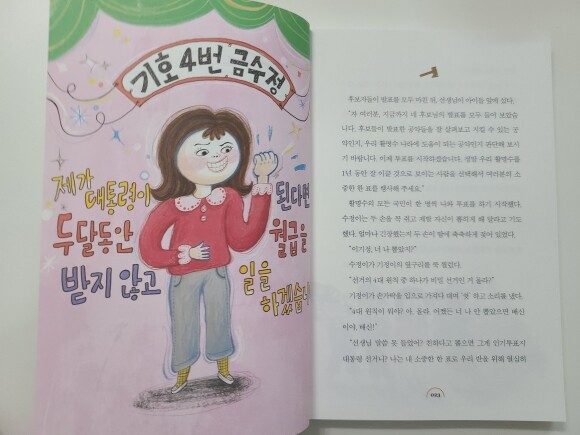 기호 4번 금수정
제가
대통령이
된다면
두달동안
월급을
받지 않고
일을
하겠습니
후보자들이 발표를 모두 마친 뒤, 선생님이 아이들 앞에 섰다.
"자 여러분, 지금까지 네 후보님의 발표를 모두 들어 보았습
니다. 후보들이 발표한 공약들을 잘 살펴보고 지킬 수 있는 공
약인지, 우리 황명수 나라에 도움이 되는 공약인지 판단해 보시
기 바랍니다. 이제 투표를 시작하겠습니다. 정말 우리 황명수를
1년 동안 잘 이끌 것으로 보이는 사람을 선택해서 여러분의 소
중한 한 표를 행사해 주세요."
황명수의 모든 국민이 한 명씩 나와 투표를 하기 시작했다.
수정이는 두 손을 꼭 쥐고 제발 자신이 뽑히게 해 달라고 기도
했다. 얼마나 긴장했는지 두 손이 땀에 축축하게 젖어 있었다.
"이기정, 너 나 뽑았지?"
수정이가 기정이의 옆구리를 쿡 찔렀다.
"선거의 4대 원칙 중 하나가 비밀 선거인 거 몰라?"
기정이가 손가락을 입으로 가져다 대며 '쉿' 하고 소리를 냈다.
"4대 원칙이 뭐야? 아, 몰라. 어쨌든 너 나 안 뽑았으면 배신
이야, 배신!"
"선생님 말씀 못 들었어? 친하다고 뽑으면 그게 인기투표지
대통령 선거니? 나는 내 소중한 한 표로 우리 반을 위해 열심히